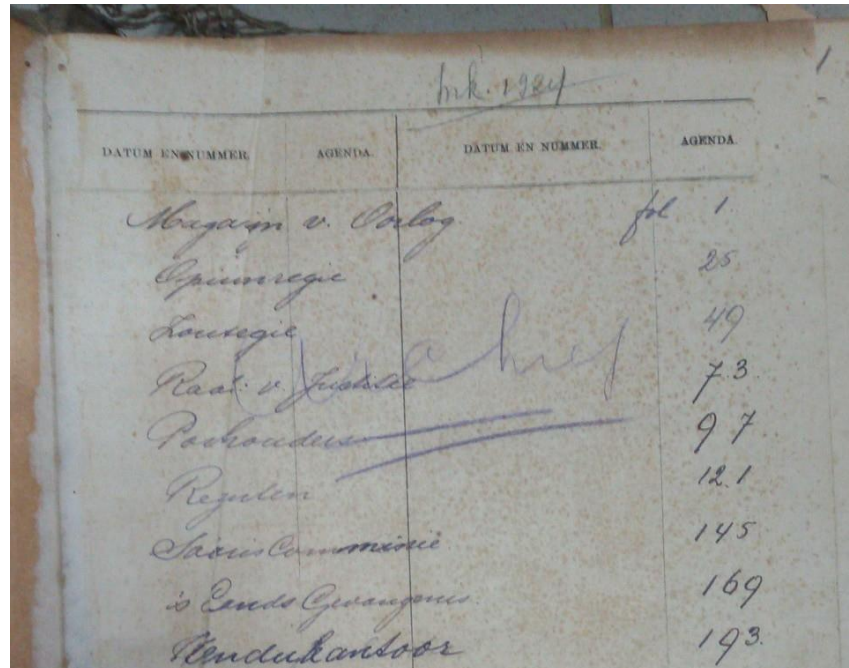 1
Ink. 1924
DATUM EN NUMMER. AGENDA. DATUM EN NUMMER. AGENDA.
Magazijn v. Oorlog fol 1
Opiumregie 25
Zoutregie 49
Raad v. Justitie 73
Pachouders 97
Regenten 121
145
's Lands Gevangenis 169
Vendukantoor 193
Archief